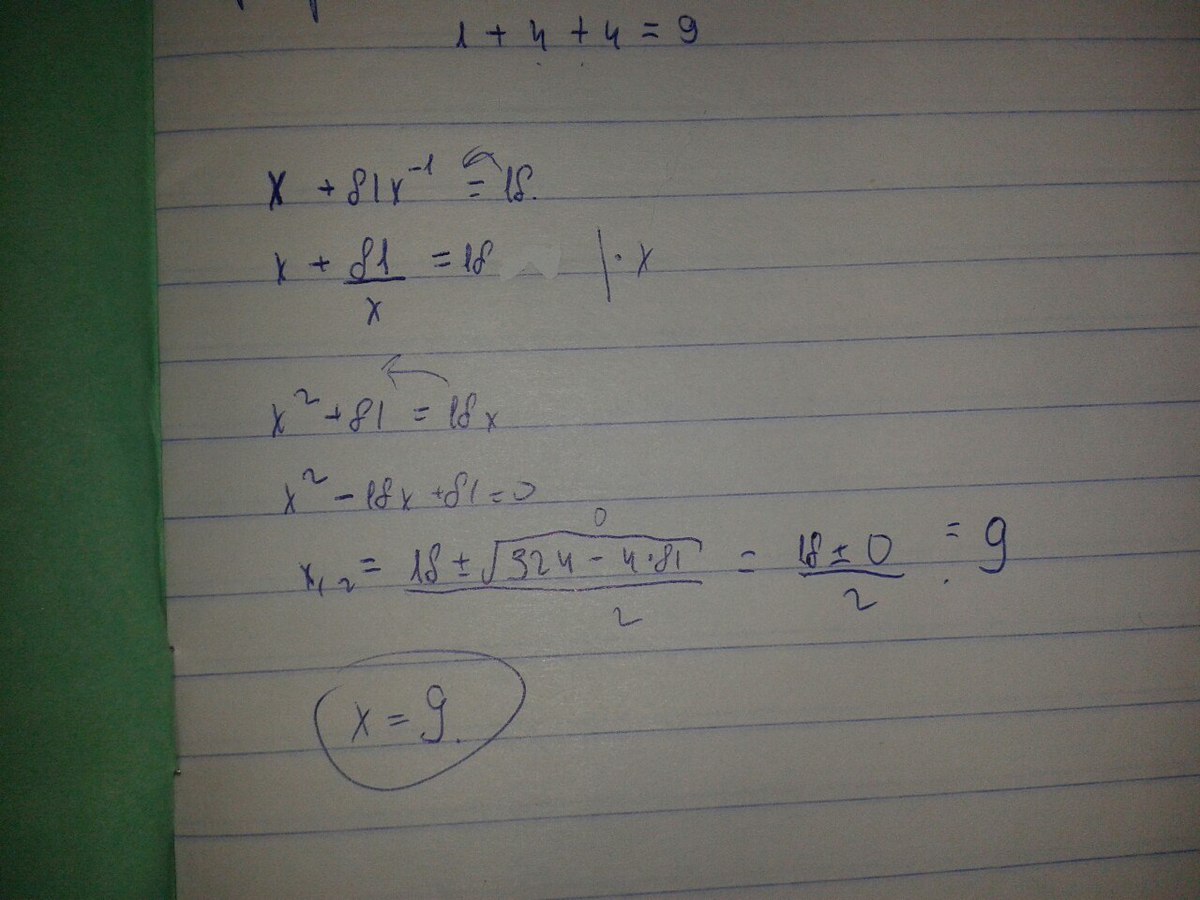 1 + 4 + 4 = 9
x + 81x⁻¹ = 18.
x + 81/x = 18 | · x
x² + 81 = 18x
x² - 18x + 81 = 0
x₁,₂ = (18 ± √(324 - 4·81))/2 = (18 ± 0)/2 = 9
0
x = 9.